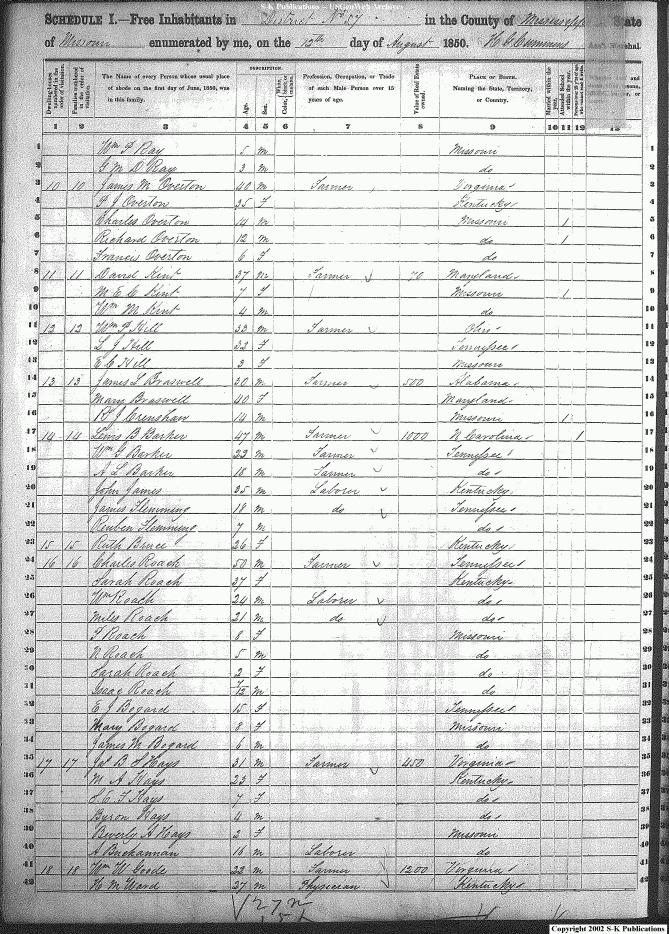 S-K Publications - USGenWeb Archives
SCHEDULE I.—Free Inhabitants in District No 57 in the County of Mississippi State
of Missouri enumerated by me, on the 12th day of August 1850. H C Cummins Ass't Marshal.
Dwelling-houses numbered in the order of visitation.
Families numbered in the order of visitation.
The Name of every Person whose usual place of abode on the first day of June, 1850, was in this family.
DESCRIPTION.
Age.
Sex.
Color, White, black or mulatto.
Profession, Occupation, or Trade of each Male Person over 15 years of age.
Value of Real Estate owned.
PLACE OF BIRTH.
Naming the State, Territory, or Country.
Married within the year.
Attended School within the year.
1 2 3 4 5 6 7 8 9 10 11 12 13
1 Wm P Ray 5 m Missouri 1
2 G M D Ray 3 m do 2
3 10 10 James M Overton 40 m Farmer Virginia 3
4 P J Overton 35 F Kentucky 4
5 Charles Overton 14 m Missouri 1 5
6 Richard Overton 12 m do 1 6
7 Francis Overton 6 F do 7
8 11 11 David Kent 37 m Farmer 70 Maryland 8
9 M E C Kent 7 F Missouri 1 9
10 Wm M Kent 4 m do 10
11 12 12 Wm P Hill 33 m Farmer Ohio 11
12 L J Hill 32 F Tennessee 12
13 E C Hill 3 F Missouri 13
14 13 13 James L Braswell 30 m Farmer 500 Alabama 14
15 Mary Braswell 40 F Maryland 15
16 J Crenshaw 14 m Missouri 1 16
17 14 14 Lewis B Barker 47 m Farmer 1000 N Carolina 1 17
18 Wm G Barker 23 m Farmer Tennessee 18
19 A L Barker 18 m Farmer do 19
20 John James 35 m Laborer Kentucky 20
21 James Flemming 18 m do Tennessee 21
22 Reuben Flemming 7 m do 22
23 15 15 Ruth Bruce 26 F Kentucky 23
24 16 16 Charles Roach 50 m Farmer Tennessee 24
25 Sarah Roach 37 F Kentucky 25
26 Wm Roach 24 m Laborer do 26
27 Miles Roach 21 m do do 27
28 F Roach 8 F Missouri 28
29 N Roach 5 m do 29
30 Sarah Roach 2 F do 30
31 Isaac Roach /12 m do 31
32 E J Bogard 15 F Tennessee 32
33 Mary Bogard 8 F Missouri 33
34 James M Bogard 6 m do 34
35 17 17 B S Hays 31 m Farmer 450 Virginia 35
36 M A Hays 23 F Kentucky 36
37 E F Hays 7 F do 37
38 Byron Hays 4 m do 38
39 Beverly A Hays 2 F Missouri 39
40 A Buckannan 16 m Laborer do 40
41 18 18 Wm W Goode 22 m Farmer 1200 Virginia 41
42 H M Ward 27 m Physician Kentucky 42
27 m
15 f
Copyright 2002 S-K Publications